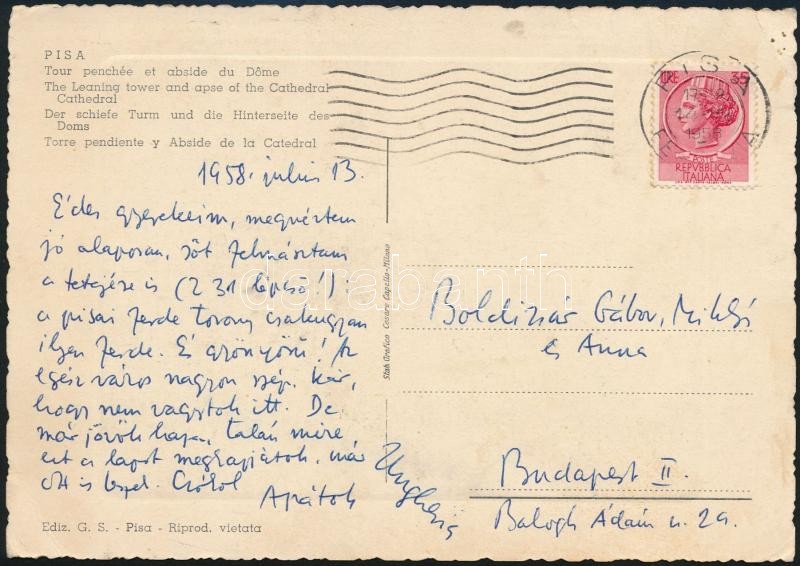 PISA
Tour penchée et abside du Dôme
The Leaning tower and apse of the Cathedral
Cathedral
Der schiefe Turm und die Hinterseite des
Doms
Torre pendiente y Abside de la Catedral
1958. julius 13.
Édes gyerekeim, megnéztem
jó alaposan, sőt felmásztam
a tetejére is (231 lépcső!):
a pisai ferde torony csakugyan
ilyen ferde. És gyönyörű! Az
egész város nagyon szép. Kár,
hogy nem vagytok itt. De
már jövök haza, talán mire
ezt a lapot megkapjátok, már
ott is leszek. Csókol
Apátok
Ediz. G. S. - Pisa - Riprod. vietata
Stab. Grafico Cesare Capello-Milano
LIRE 35
POSTE
REPVBBLICA
ITALIANA
PISA
1958
Boldizsár Gábor, Miklós
és Anna
Budapest II.
Balogh Ádám u. 29.
Ungheria
darabanth